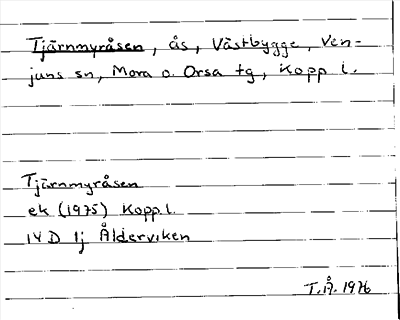 Tjärnmyråsen, ås, Västbygge, Ven-
juns sn, Mora o. Orsa tg, Kopp l.
Tjärnmyråsen
ek (1975) Kopp. l.
14 D 1j Ålderviken
T.Å. 1976